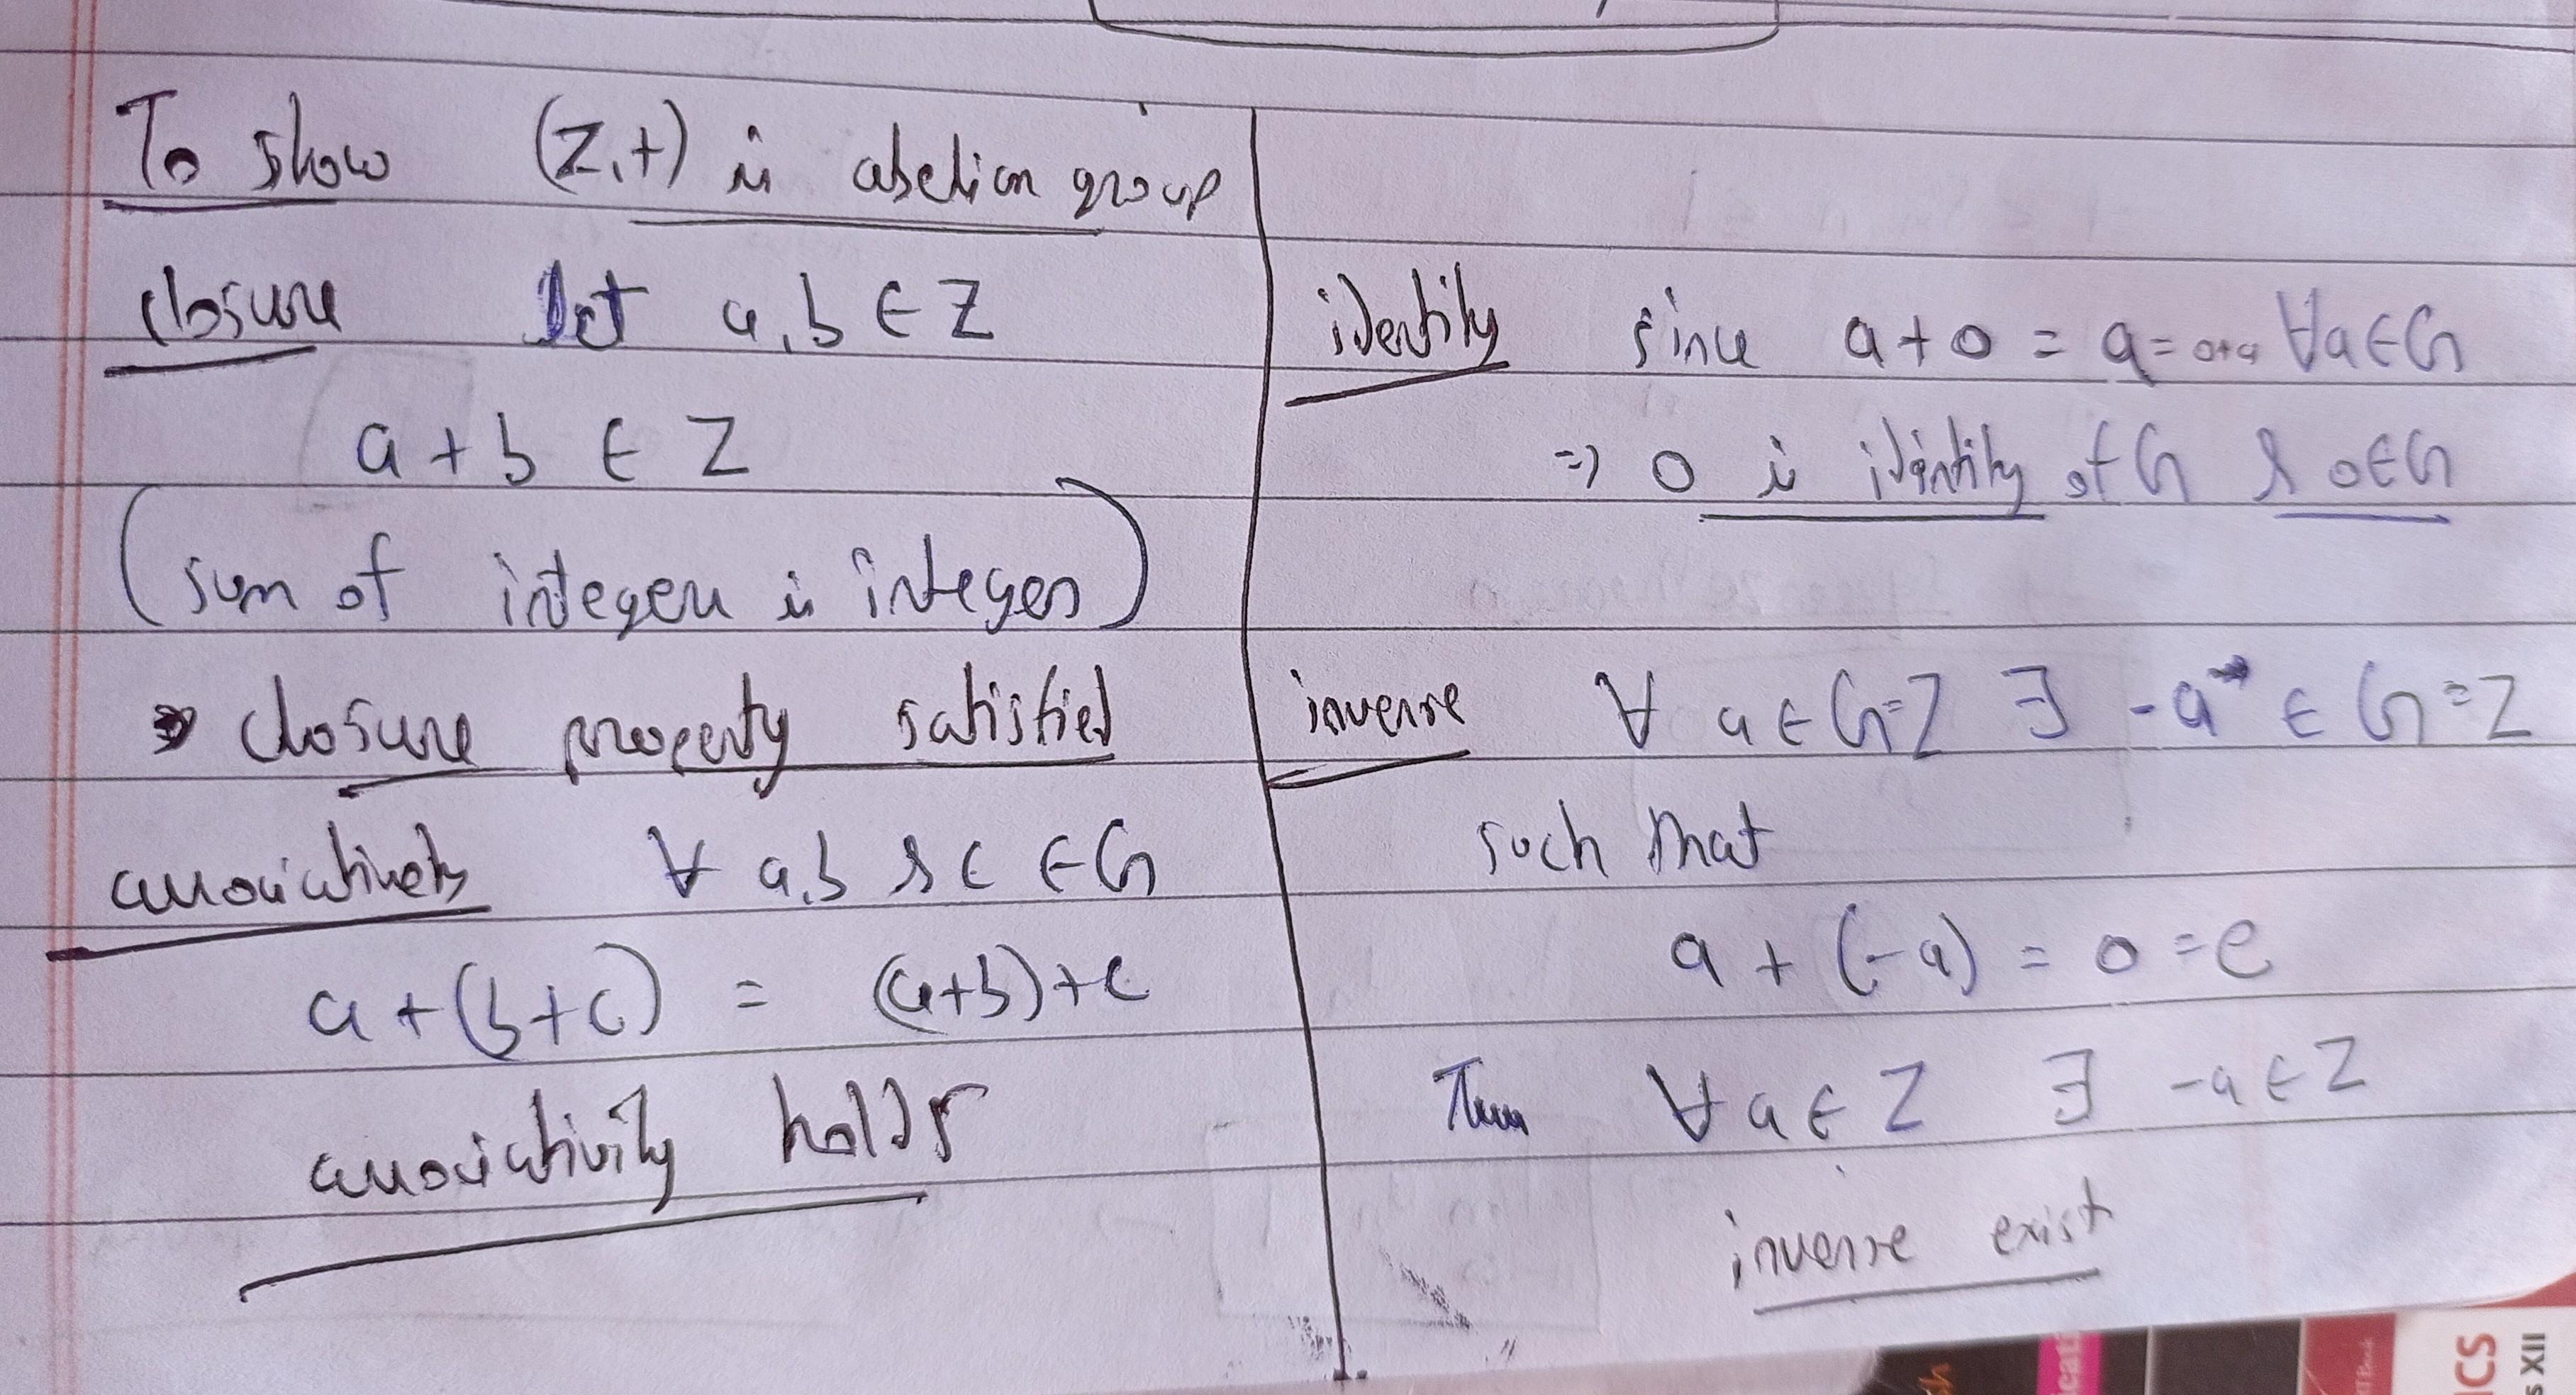 To show (Z,+) is abelian group
closure let a,b ∈ Z
a + b ∈ Z
(sum of integers is integer)
⇒ closure property satisfied
associativity ∀ a,b & c ∈ G
a + (b+c) = (a+b)+c
associativity holds
identity since a+0 = a = 0+a ∀a∈G
⇒ 0 is identity of G & 0∈G
inverse ∀ a ∈ G=Z ∃ -a ∈ G=Z
such that
a + (-a) = 0 = e
Thus ∀ a ∈ Z ∃ -a ∈ Z
inverse exist
CS
s XII